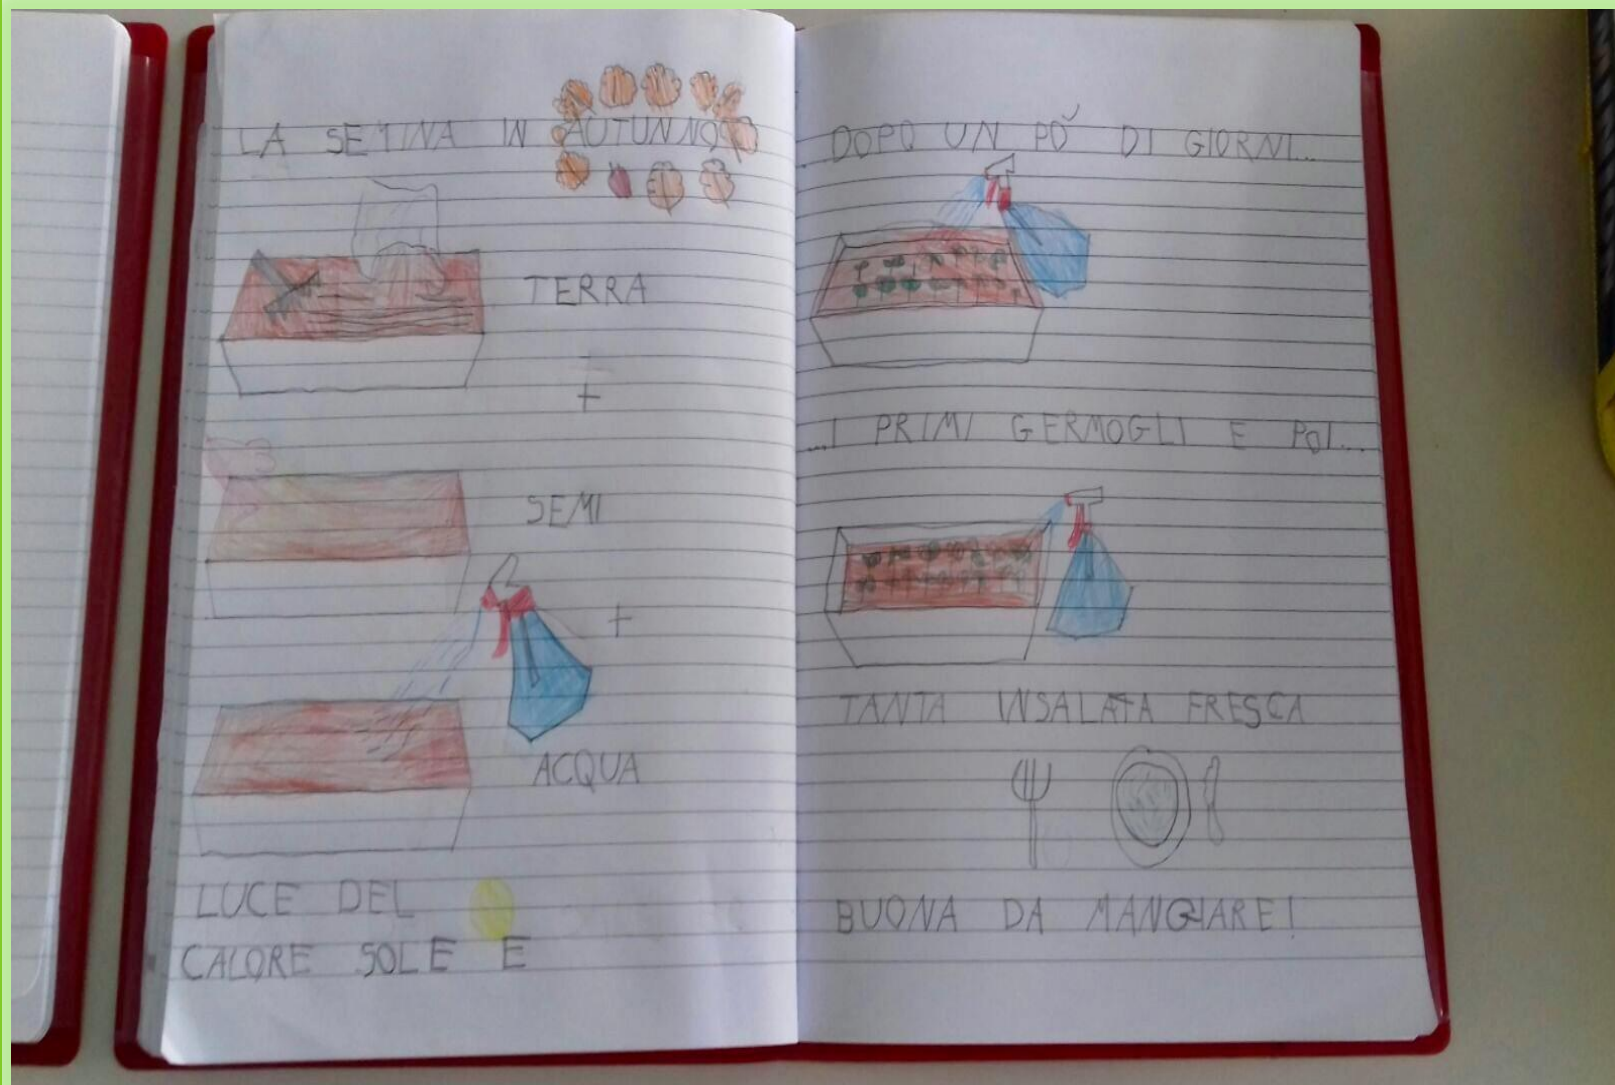 LA SEMINA IN AUTUNNO
TERRA
+
SEMI
+
ACQUA
LUCE DEL
CALORE SOLE E
DOPO UN PO' DI GIORNI...
...I PRIMI GERMOGLI E POI...
TANTA INSALATA FRESCA
BUONA DA MANGIARE!